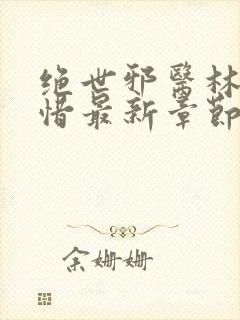 绝世邪醫林
惜最新章節
余姗姗